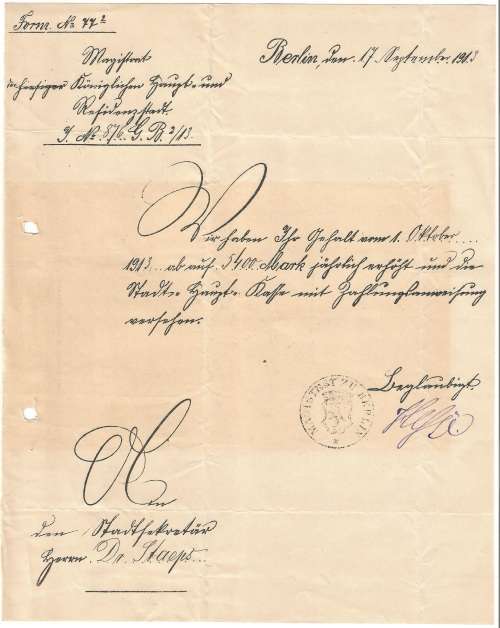 Form. No 77²
Berlin, den 17. September 1913
Magistrat
hiesiger Königlichen Haupt- und
Residenzstadt.
J. No. 876. G. B. 2/13.
Wir haben Ihr Gehalt vom 1. Oktober ....
1913 ... ab auf 5400 Mark jährlich erhöht und die
Stadt-Haupt-Kasse mit Zahlungsanweisung
versehen.
Beglaubigt.
MAGISTRAT ZU BERLIN
An
den Stadtsekretär
Herrn Dr. Staeps...